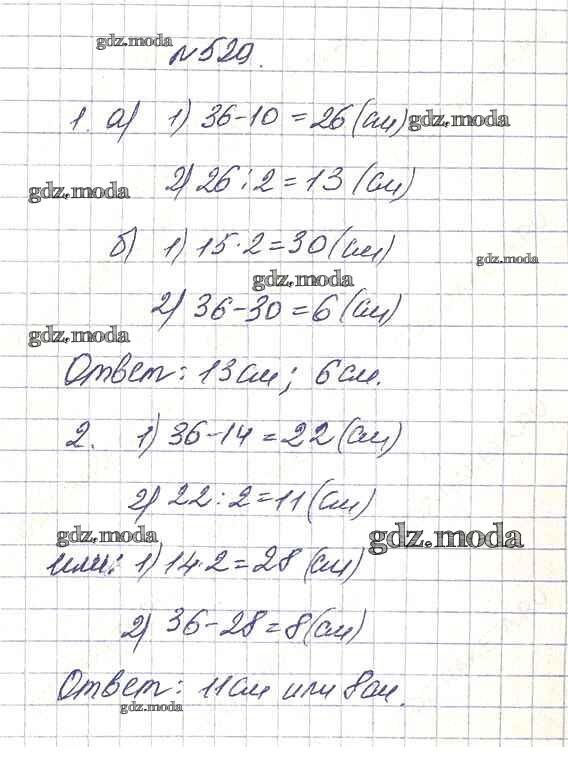 gdz.moda
№529.
1. а) 1) 36-10 = 26 (см) gdz.moda
2) 26:2=13 (см)
gdz.moda
б) 1) 15·2=30 (см)
gdz.moda
gdz.moda
2) 36-30=6 (см)
gdz.moda
Ответ: 13см; 6см.
2. 1) 36-14=22 (см)
2) 22:2=11 (см)
gdz.moda gdz.moda
или: 1) 14·2=28 (см)
2) 36-28=8(см)
Ответ: 11см или 8см.
gdz.moda